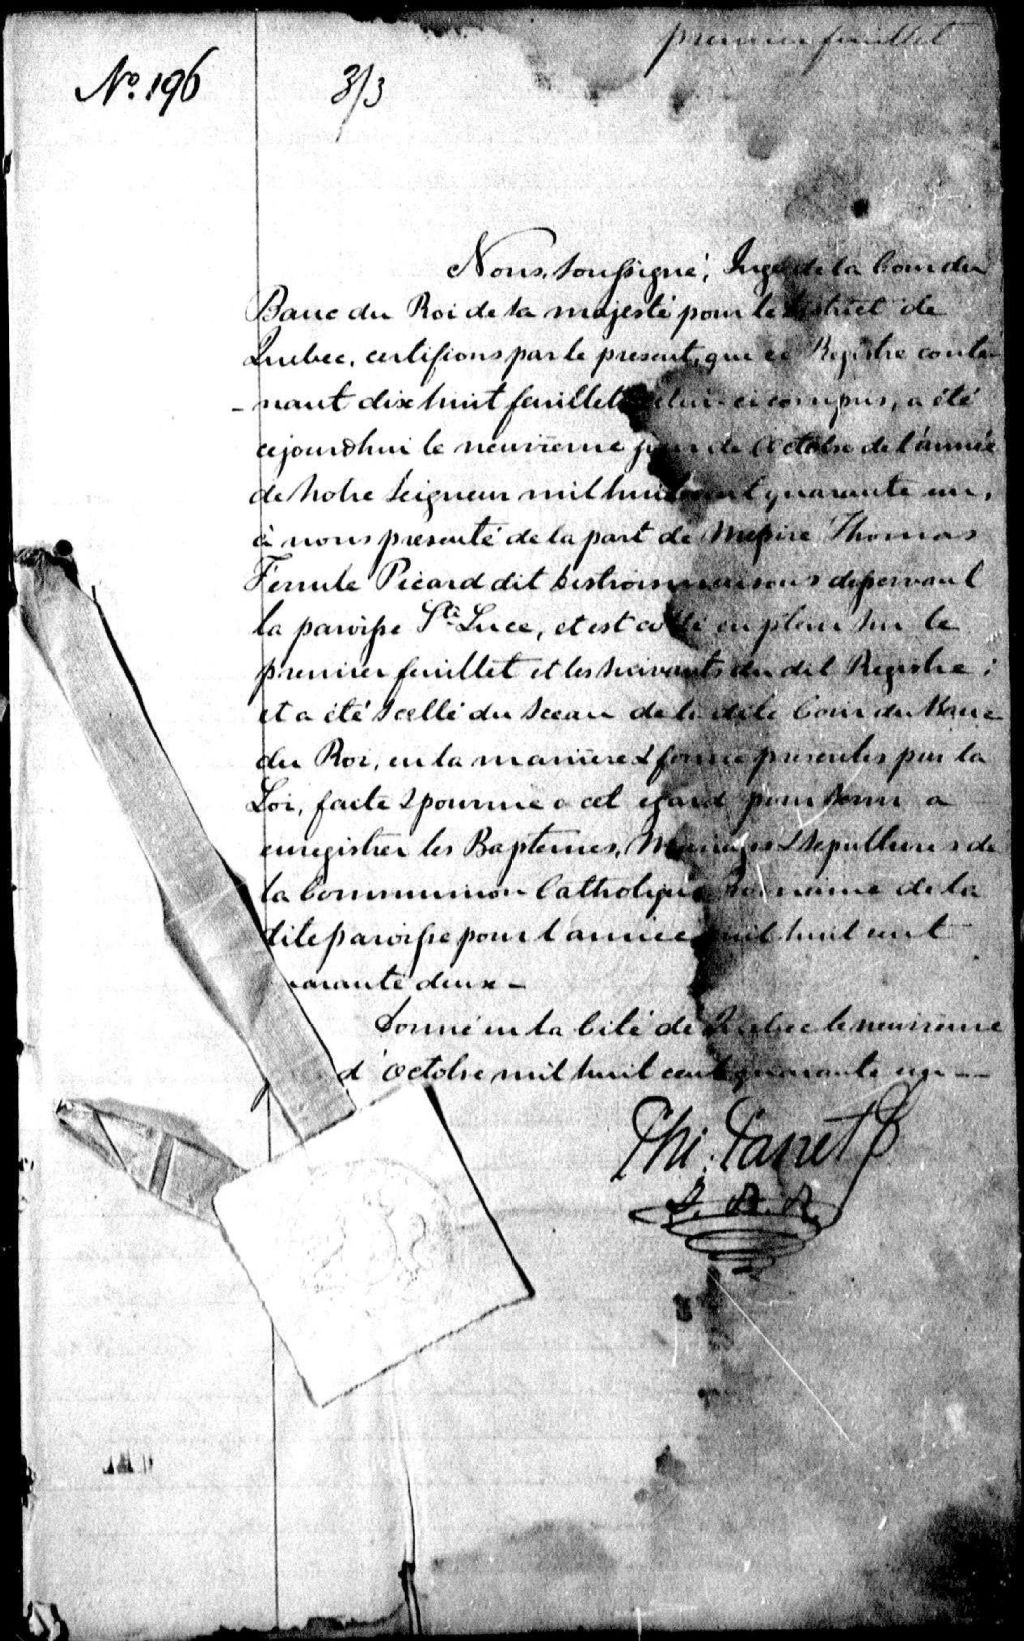 premier feuillet
No. 196
3/3
Nous, soussigné, Juge de la Cour du
Banc du Roi de sa majesté pour le district de
Quebec, certifions par le present, que ce Registre conte-
-nant dix huit feuillets celui-ci compris, a été
cejourdhui le neuvieme jour de Octobre de l'année
de notre Seigneur mil huit cent quarante un,
à nous presenté de la part de Messire Thomas
Ferrule Picard dit Destroismaisons desservant
la paroisse Ste Luce, et est coté en plein sur le
premier feuillet et les suivants du dit Registre;
et a été scellé du sceau de la dite Cour du Banc
du Roi, en la maniere & forme presentes par la
Loi, faite & pourvue a cet egard pour servir a
enregistrer les Baptemes, Mariages & Sepultures de
la Communion Catholique Romaine de la
dite paroisse pour l'année mil huit cent
quarante deux-
Donné en la Cité de Quebec le neuvieme
d'Octobre mil huit cent quarante un--
Phi. Panet
J. B. R.